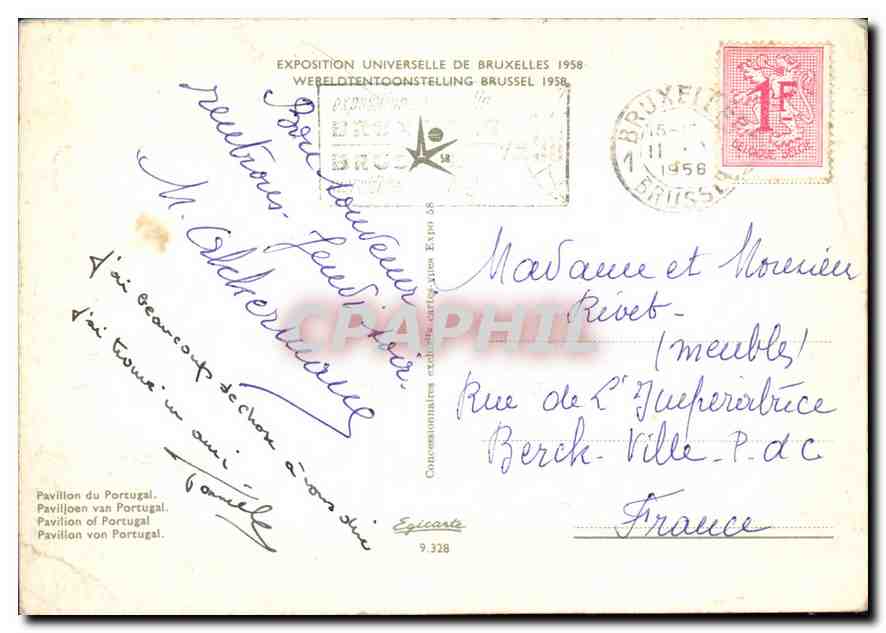 EXPOSITION UNIVERSELLE DE BRUXELLES 1958
WERELDTENTOONSTELLING BRUSSEL 1958
Bon souvenir
rentrons Jeudi soir.
M. Ackermann
j'ai beaucoup de chose à vous dire
j'ai trouvé un ami -
BRUXELLES
15-
11
1958
1
BRUSSEL
1F
BELGIQUE-BELGIE
58
Concessionnaires exclusifs cartes-vues Expo 58
CPAPHIL
Madame et Monsieur
Rivet-
(meubles)
Rue de L'Impératrice
Berck-Ville-P.d.C
France
Pavillon du Portugal.
Paviljoen van Portugal.
Pavilion of Portugal
Pavillon von Portugal.
Egicarte
9.328